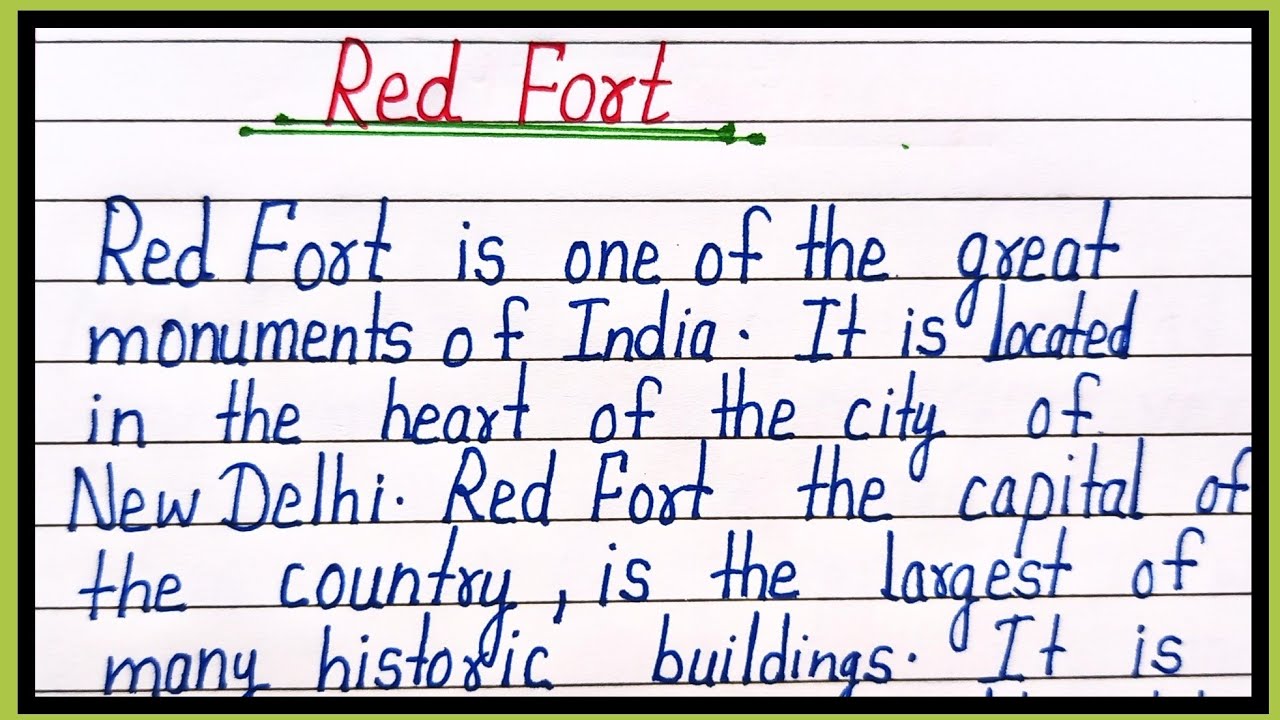 Red Fort
Red Fort is one of the great
monuments of India. It is located
in the heart of the city of
New Delhi. Red Fort the capital of
the country, is the largest of
many historic buildings. It is